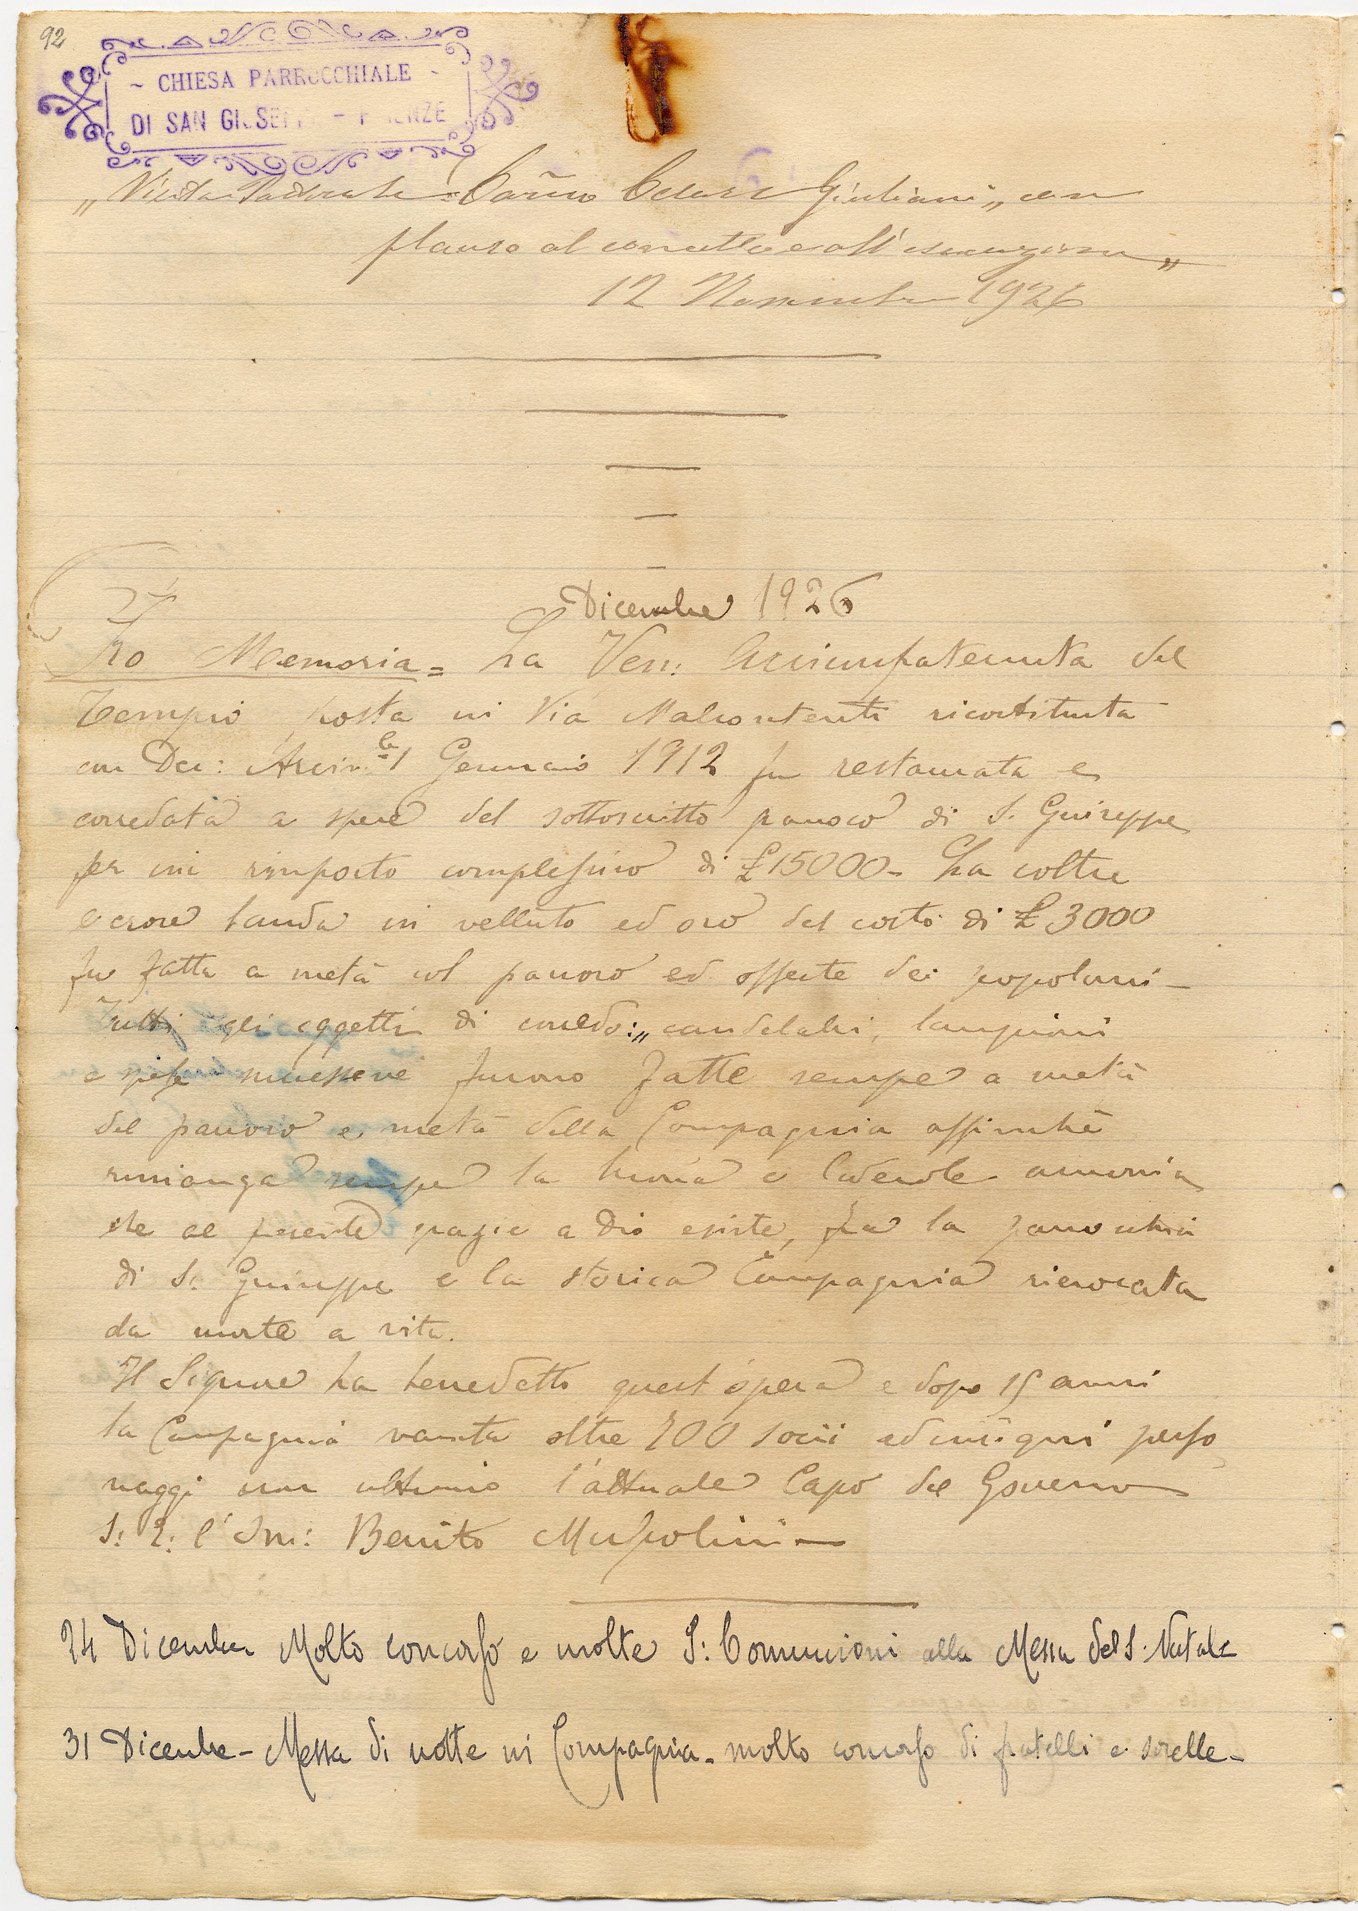 92
~ CHIESA PARROCCHIALE ~
DI SAN GIUSEPPE - FIRENZE
„Visita Pastorale Giuliani„ con
plauso al concetto e all'esecuzione„
12 Novembre 1926
Dicembre 1926
Pro Memoria = La Ven: Arciconfraternita del
Tempio, posta in Via Malcontenti ricostituita
con Dec: Arciv.le 1 Gennaio 1912 fu restaurata e
corredata a spese del sottoscritto parroco di S. Giuseppe
per un importo complessivo di £ 15000 - La coltre
e croce banda in velluto ed oro del costo di £ 3000
fu fatta a metà col parroco ed offerte dei popolani -
Tutti gli oggetti di corredo: „ candelabri, lampioni
e spese furono fatte sempre a metà
del parroco e metà della Compagnia affinchè
rimanga sempre la buona e lodevole armonia
che al presente grazie a Dio esiste, fra la parrochia
di S. Giuseppe e la storica Compagnia rievocata
da morte a vita.
Il Signore ha benedetto quest'opera e dopo 15 anni
la Compagnia vanta oltre 200 socii ed insigni perso
naggi non ultimo l'attuale Capo del Governo
S: E: l'On: Benito Mussolini -
24 Dicembre Molto concorso e molte S: Comunioni alla Messa del S. Natale
31 Dicembre - Messa di notte in Compagnia - molto concorso di fratelli e sorelle -